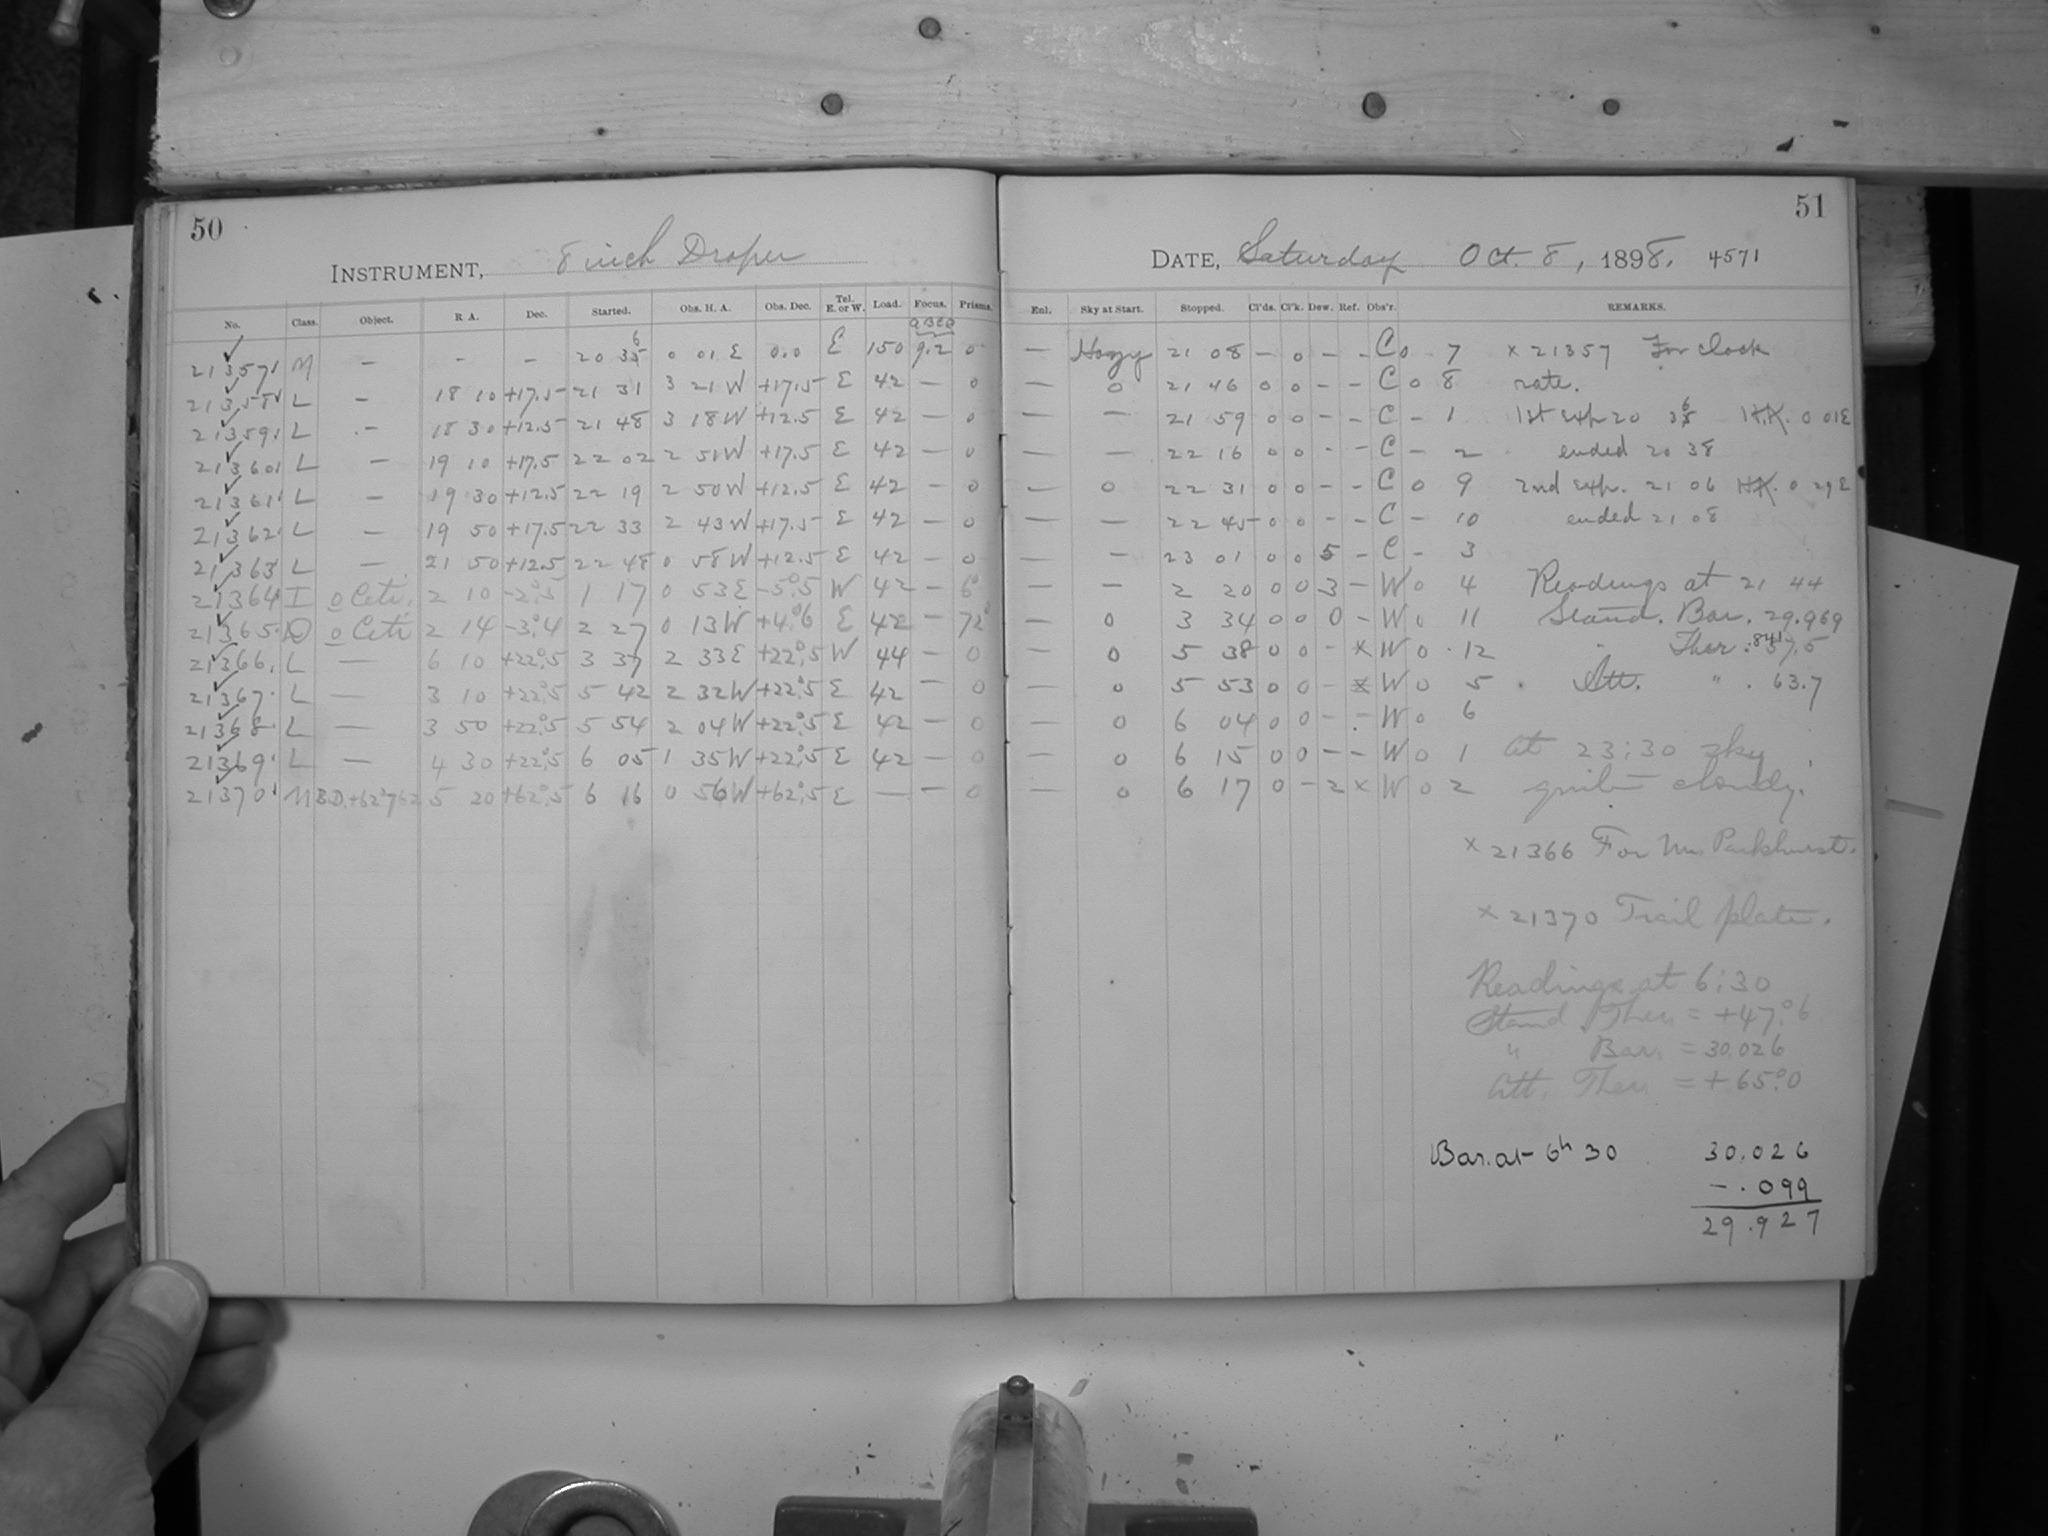 50
INSTRUMENT, 8 inch Draper
No. Class. Object. R A. Dec. Started. Obs. H. A. Obs. Dec. Tel. E. or W. Load. Focus. Prisms.
21357 M — — — 20 36 0 01 E 0.0 E 150 9.2 0
21358 L — 18 10 +17.5 21 31 3 21 W +17.5 E 42 — 0
21359 L — 18 30 +12.5 21 48 3 18 W +12.5 E 42 — 0
21360 L — 19 10 +17.5 22 02 2 51 W +17.5 E 42 — 0
21361 L — 19 30 +12.5 22 19 2 50 W +12.5 E 42 — 0
21362 L — 19 50 +17.5 22 33 2 43 W +17.5 E 42 — 0
21363 L — 21 50 +12.5 22 48 0 58 W +12.5 E 42 — 0
21364 I o Ceti. 2 10 -2°.5 1 17 0 53 E -5°.5 W 42 — 6°
21365 D o Ceti 2 14 -3°.4 2 27 0 13 W +4°.6 E 42 —
21366 L — 6 10 +22°.5 3 37 2 33 E +22°.5 W 44 — 0
21367 L — 3 10 +22°.5 5 42 2 32 W +22°.5 E 42 0
21368 L — 3 50 +22°.5 5 54 2 04 W +22°.5 E 42 — 0
21369 L — 4 30 +22°.5 6 05 1 35 W +22°.5 E 42 — 0
21370 M B.D.+62°762 5 20 +62°.5 6 16 0 56 W +62°.5 E — — 0
51
DATE, Saturday Oct. 8, 1898. 4571
Enl. Sky at Start. Stopped. Cl'ds. Cl'k. Dew. Ref. Obs'r. REMARKS.
— Hazy 21 08 — 0 — - C 0 7 × 21357 For clock
— 0 21 46 0 0 - - C 0 8 rate.
— — 21 59 0 0 - - C - 1 1st exp 20 36 H.A. 0 01 E
— — 22 16 0 0 - - C - 2 ended 20 38
— 0 22 31 0 0 - - C 0 9 2nd exp. 21 06 H.A. 0 29 E
— — 22 45 0 0 - - C - 10 ended 21 08
— — 23 01 0 0 5 - C - 3
— — 2 20 0 0 3 - W 0 4 Readings at 21 44
— 0 3 34 0 0 0 - W 0 11 Stand. Bar. 29.969
— 0 5 38 0 0 - × W 0 12 " Ther. 57.5
.841
— 0 5 53 0 0 - × W 0 5 Att. " . 63.7
— 0 6 04 0 0 - - W 0 6
— 0 6 15 0 0 - - W 0 1 At 23:30 sky
— 0 6 17 0 - 2 × W 0 2 quite cloudy.
× 21366 For Mr. Parkhurst.
× 21370 Trail plate.
Readings at 6:30
Stand Ther. = +47°.6
" Bar. = 30.026
Att. Ther. = +65°.0
Bar. at 6h 30 30.026
-.099
29.927